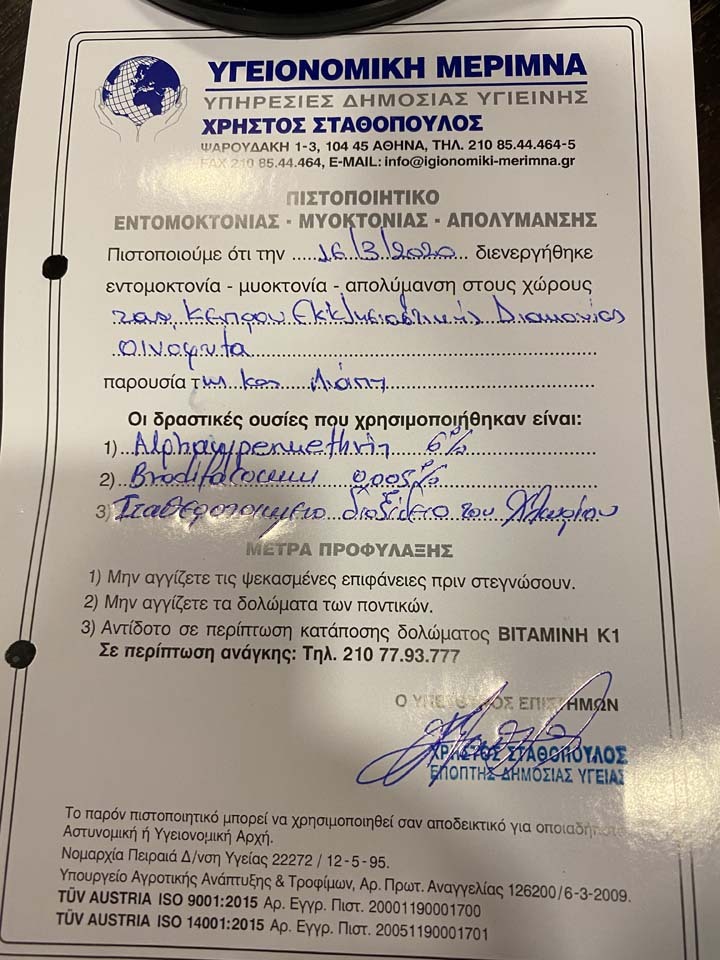 ΥΓΕΙΟΝΟΜΙΚΗ ΜΕΡΙΜΝΑ
ΥΠΗΡΕΣΙΕΣ ΔΗΜΟΣΙΑΣ ΥΓΙΕΙΝΗΣ
ΧΡΗΣΤΟΣ ΣΤΑΘΟΠΟΥΛΟΣ
ΨΑΡΟΥΔΑΚΗ 1-3, 104 45 ΑΘΗΝΑ, ΤΗΛ. 210 85.44.464-5
FAX 210 85.44.464, E-MAIL: info@igionomiki-merimna.gr
ΠΙΣΤΟΠΟΙΗΤΙΚΟ
ΕΝΤΟΜΟΚΤΟΝΙΑΣ - ΜΥΟΚΤΟΝΙΑΣ - ΑΠΟΛΥΜΑΝΣΗΣ
Πιστοποιούμε ότι την 16/3/2020 διενεργήθηκε
εντομοκτονία - μυοκτονία - απολύμανση στους χώρους
του Κέντρου Εκκλησιαστικής Διακονίας
Οινόφυτα
παρουσία της κας
Οι δραστικές ουσίες που χρησιμοποιήθηκαν είναι:
1) Alphacypermethrin 6%
2) Brodifacoum 0,005%
3) Σταθεροποιημένο διοξείδιο του Χλωρίου
ΜΕΤΡΑ ΠΡΟΦΥΛΑΞΗΣ
1) Μην αγγίζετε τις ψεκασμένες επιφάνειες πριν στεγνώσουν.
2) Μην αγγίζετε τα δολώματα των ποντικών.
3) Αντίδοτο σε περίπτωση κατάποσης δολώματος ΒΙΤΑΜΙΝΗ Κ1
Σε περίπτωση ανάγκης: Τηλ. 210 77.93.777
Ο ΥΠΕΥΘΥΝΟΣ ΕΠΙΣΤΗΜΩΝ
ΧΡΗΣΤΟΣ ΣΤΑΘΟΠΟΥΛΟΣ
ΕΠΟΠΤΗΣ ΔΗΜΟΣΙΑΣ ΥΓΕΙΑΣ
Το παρόν πιστοποιητικό μπορεί να χρησιμοποιηθεί σαν αποδεικτικό για οποιαδήποτε
Αστυνομική ή Υγειονομική Αρχή.
Νομαρχία Πειραιά Δ/νση Υγείας 22272 / 12-5-95.
Υπουργείο Αγροτικής Ανάπτυξης & Τροφίμων, Αρ. Πρωτ. Αναγγελίας 126200/6-3-2009.
TÜV AUSTRIA ISO 9001:2015 Αρ. Εγγρ. Πιστ. 20001190001700
TÜV AUSTRIA ISO 14001:2015 Αρ. Εγγρ. Πιστ. 20051190001701